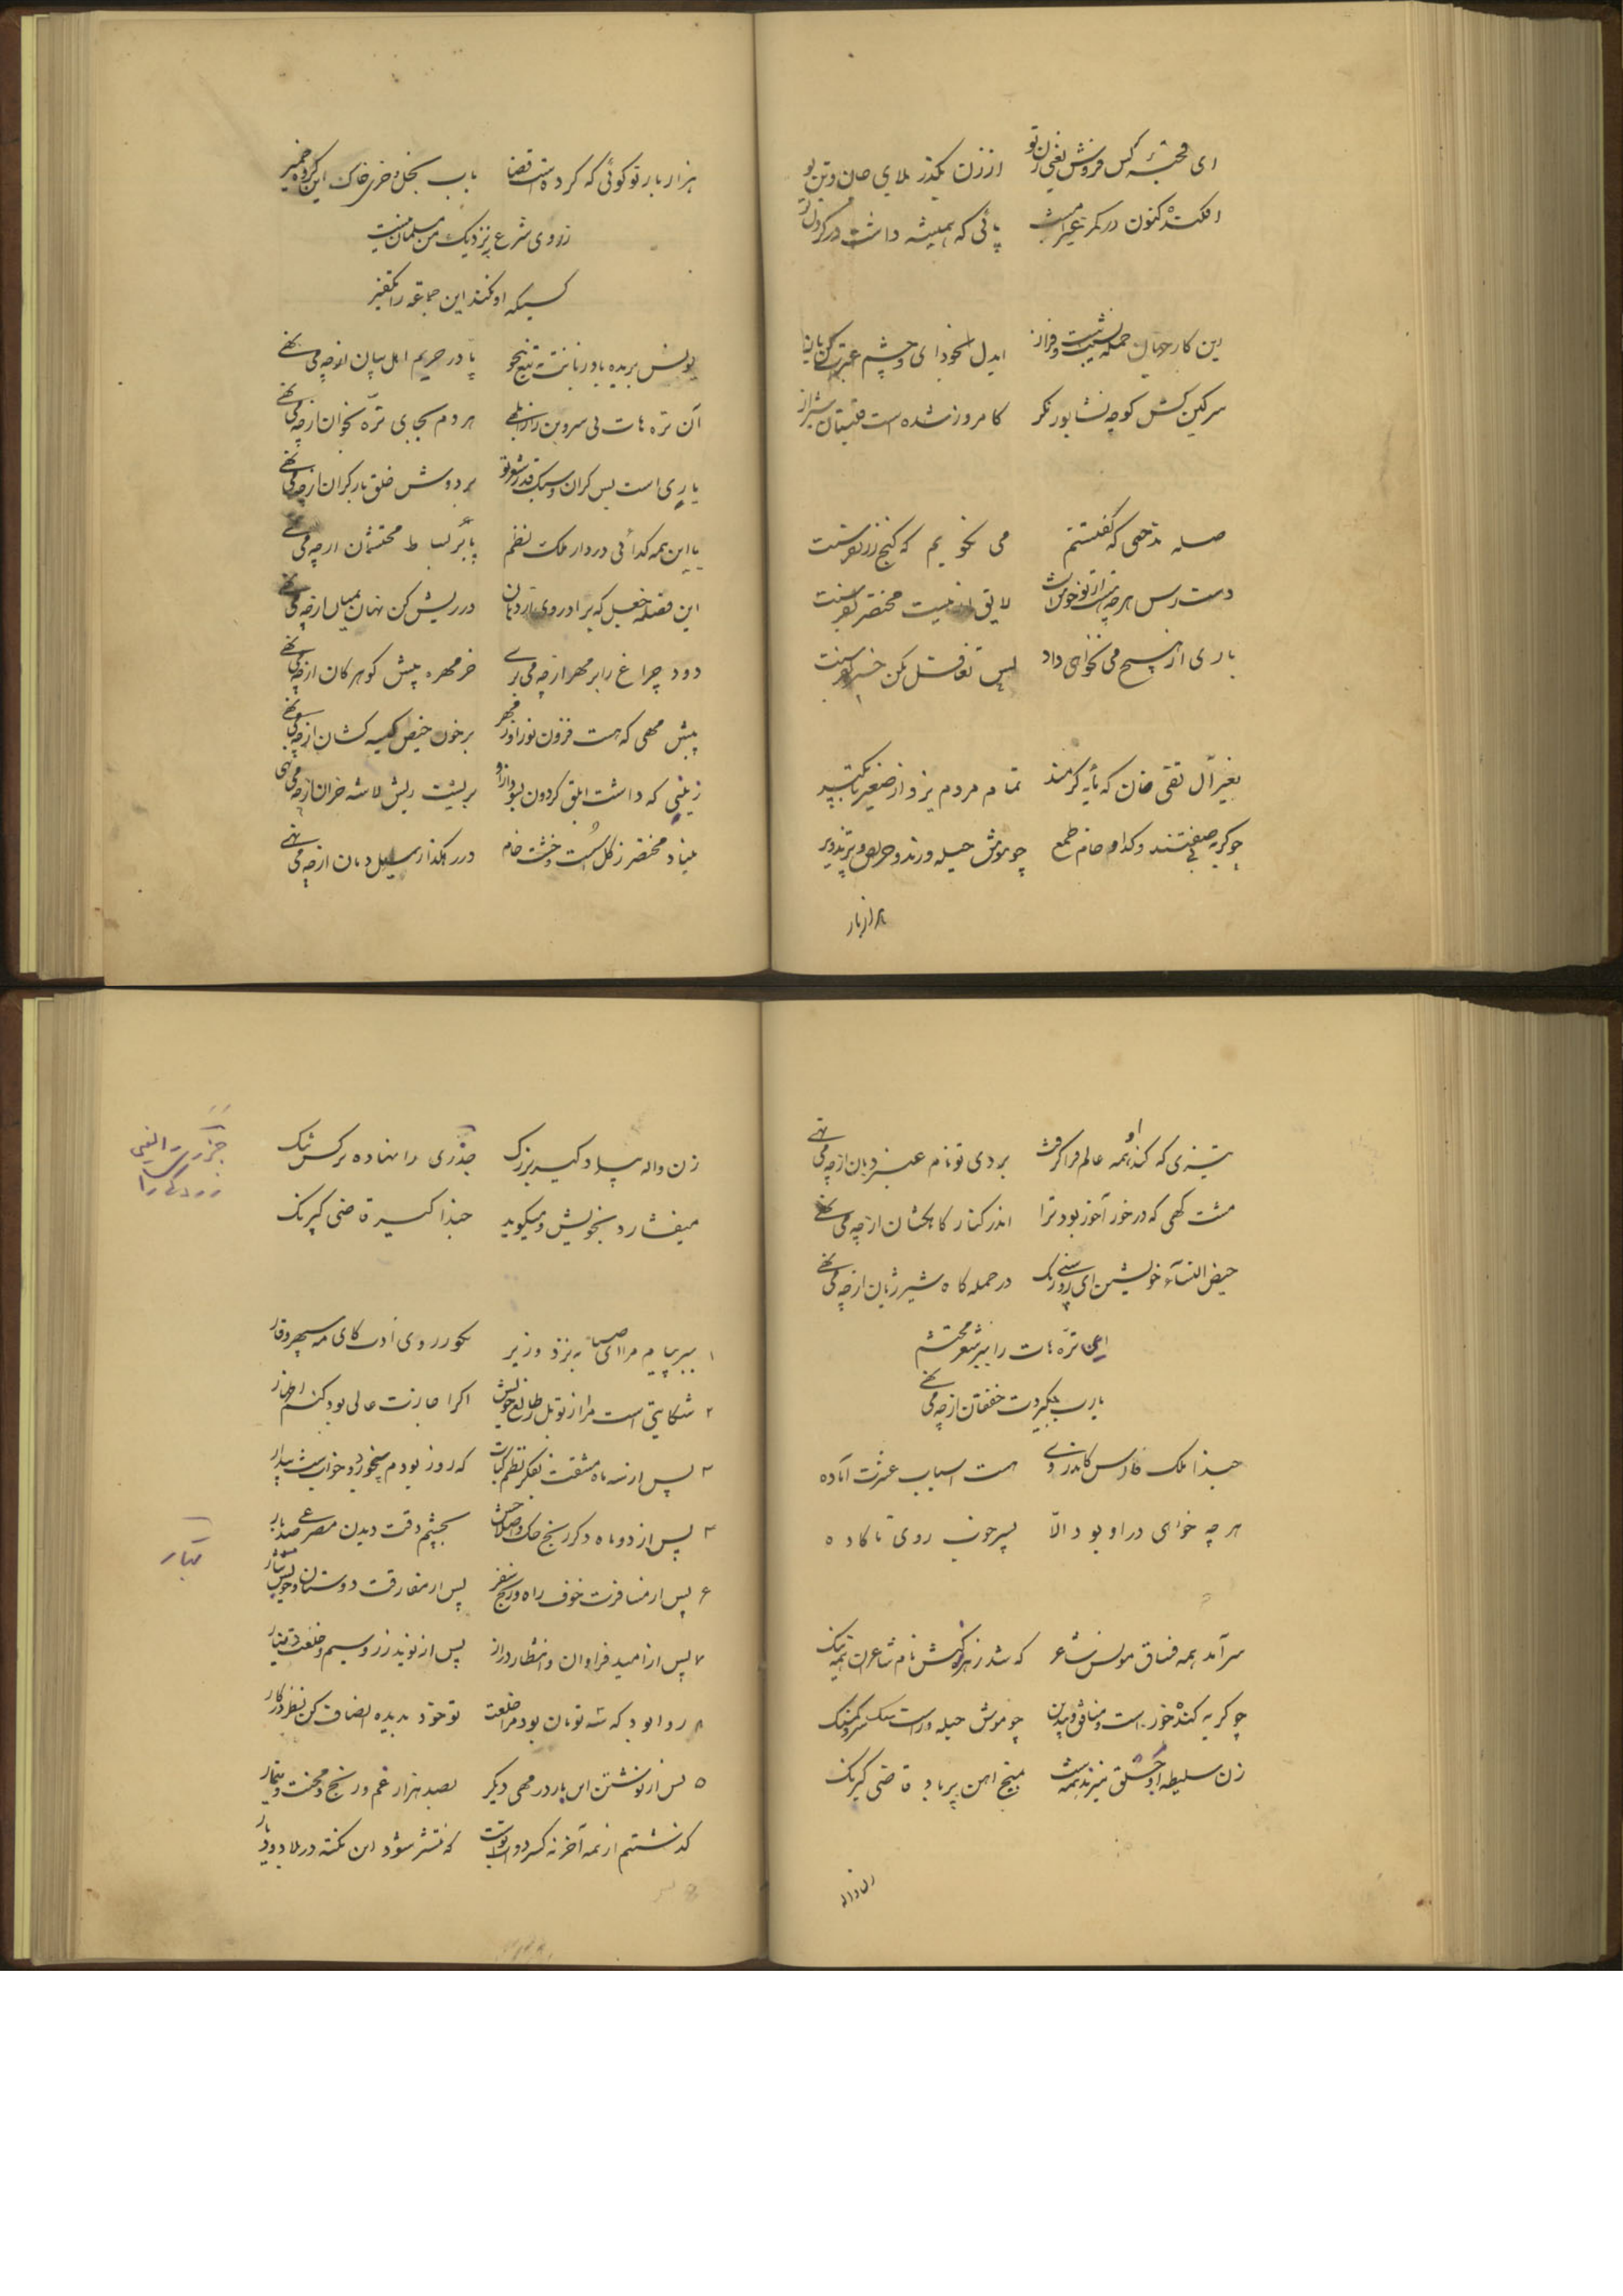 ای قحبهٔ کس فروش یعنی زن تو از زن بگذر بلای جان و تن تو
افکنده کنون در کمر پائی که همیشه داشت در گردن تو
این کار جهان جمله نشیب است و فراز ایدل بخود ای و چشم عبرت کن باز
سرکین کش کوچه نشابور نکر کامروز شده است قلتبان شیراز
صله مدحی که گفتستم می نگویم که گنج زر بفرست
دست رس هر چه لایق ار نیست مختصر بفرست
باری ار هیچ می نخواهی داد پس تغافل مکن خبر بفرست
بغیر آل تقی خان که مایه کرمند تمام مردم یزد از صغیر تا بکبیر
چو گربه صفتند و گدا و خام طمع چو موش حیله ورند و حریص و پر تزویر
هزار بار
هزار بار تو گوئی که کرده است قضا بآب بخل و خری خاک این گروه خمیر
ز روی شرع بنزدیک من مسلمان نیست
کسیکه او نکند این جماعه را تکفیر
یونس بریده باد زبانت به تیغ هجو پا در حریم اهل بیان از چه می نهی
آن تره هات بی سر و بن را ز ابلهی هر دم بجای تره بخوان از چه می نهی
باری است بس گران و سبک قدر شعر تو بر دوش خلق بار گران از چه می نهی
با این همه گدائی در دار ملک نظم پا بر بساط محتشمان از چه می نهی
این فضله جعل که بر در ریش کن نهان بمیان از چه می نهی
دود چراغ را بر مهر از چه می بری خرمهره پیش گوهر کان از چه می نهی
پیش مهی که هست فزون نور او ز مهر بر خون حیض کیسه کتان از چه می نهی
زینی که داشت ابلق گردون بسو بر پشت ریش لاشه خران از چه می نهی
بنیاد مختصر ز گل سست و خشت خام در رهگذار سیل دمان از چه می نهی
تیزی که کند همه عالم فرا گرفت بر وی تو نام عنبر و بان از چه می نهی
مشت کهی که در خور آخور بود ترا اندر کنار کاهکشان از چه می نهی
حیض النساء خویشتن ای در حمله گاه شیر ژیان از چه می نهی
این تره هات را ببر شعر محتشم
یارب بگیردت خفقان از چه می نهی
حبذا ملک فارس کاندر وی هست اسباب عشرت آماده
هر چه خواهی در او بود الا پسر خوب روی ناگاده
سر آمد همه فساق مونس شاعر که شد ز نام شاعران همه ننگ
چو گربه گنده خور است و منافق و بیدین چو موش حیله ور است
زن سلیطه او بمیخ اهن پر باد قاضی کیرنگ
زن واله
زن واله نهاده برکس تنگ
میفشارد بخویش و میگوید حبذا کیر قاضی کیرنگ
۱ ببر پیام مرا ای صبا به نزد وزیر بگو ز روی ادب کای مه سپهر وقار
۲ شکایتی است مرا از تو بل ز طالع خویش اگر اجازت عالی بود کنم اظهار
۳ پس از سه ماه مشقت بفکر نظم کتاب که روز بودم بیخورد و خواب شب بیدار
۴ پس از دو ماه دگر رنج حک و اصلاحش بچشم دقت دیدن مصرعی صد بار
۶ پس از مسافرت خوف راه و رنج سفر پس از مفارقت دوستان و خویش و تبار
۷ پس از امید فراوان و انتظار دراز پس از نوید زر و سیم و خلعت و دینار
۸ روا بود که سه تومان بود مرا خلعت تو خود بدیده انصاف کن نظر در کار
۵ پس از نوشتن این بار در مهی دیگر بصد هزار غم و رنج و محنت و تیمار
گذشتم از همه آخر نه که منتشر شود این نکته در بلاد و دیار
تبار